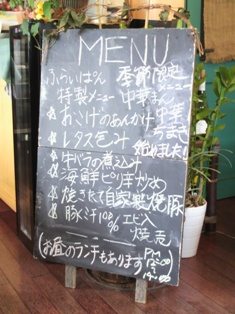 MENU
ふらいぱん
特製メニュー
季節限定
メニュー
中華まん
中華
ちまき
始めました!
おこげのあんかけ
レタス包み
牛バラの煮込み
海鮮ピリ辛炒め
焼きたて自家製焼豚
豚汁100%エビ入
焼売
(お昼のランチもあります)
PM
12:00